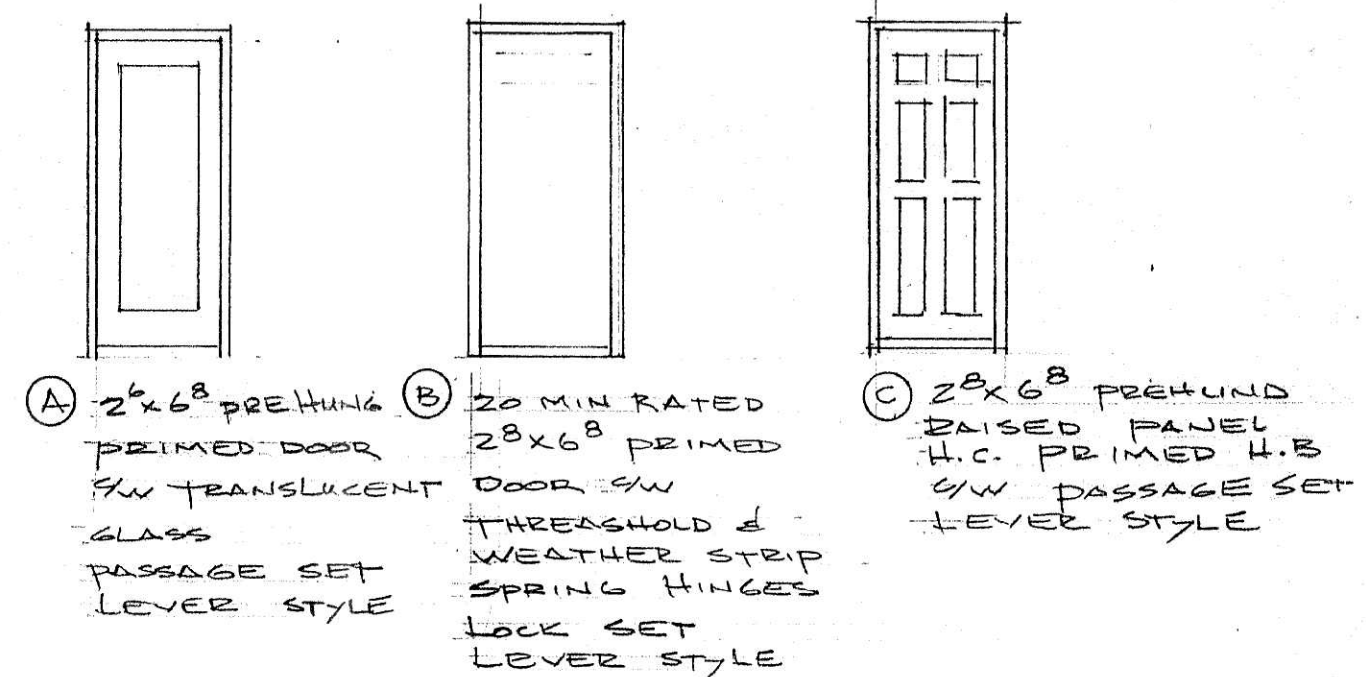 A 2⁶x6⁸ PREHUNG
PRIMED DOOR
C/W TRANSLUCENT
GLASS
PASSAGE SET
LEVER STYLE
B 20 MIN RATED
2⁸x6⁸ PRIMED
DOOR C/W
THREASHOLD &
WEATHER STRIP
SPRING HINGES
LOCK SET
LEVER STYLE
C 2⁸x6⁸ PREHUND
RAISED PANEL
H.C. PRIMED H.B
C/W PASSAGE SET
LEVER STYLE